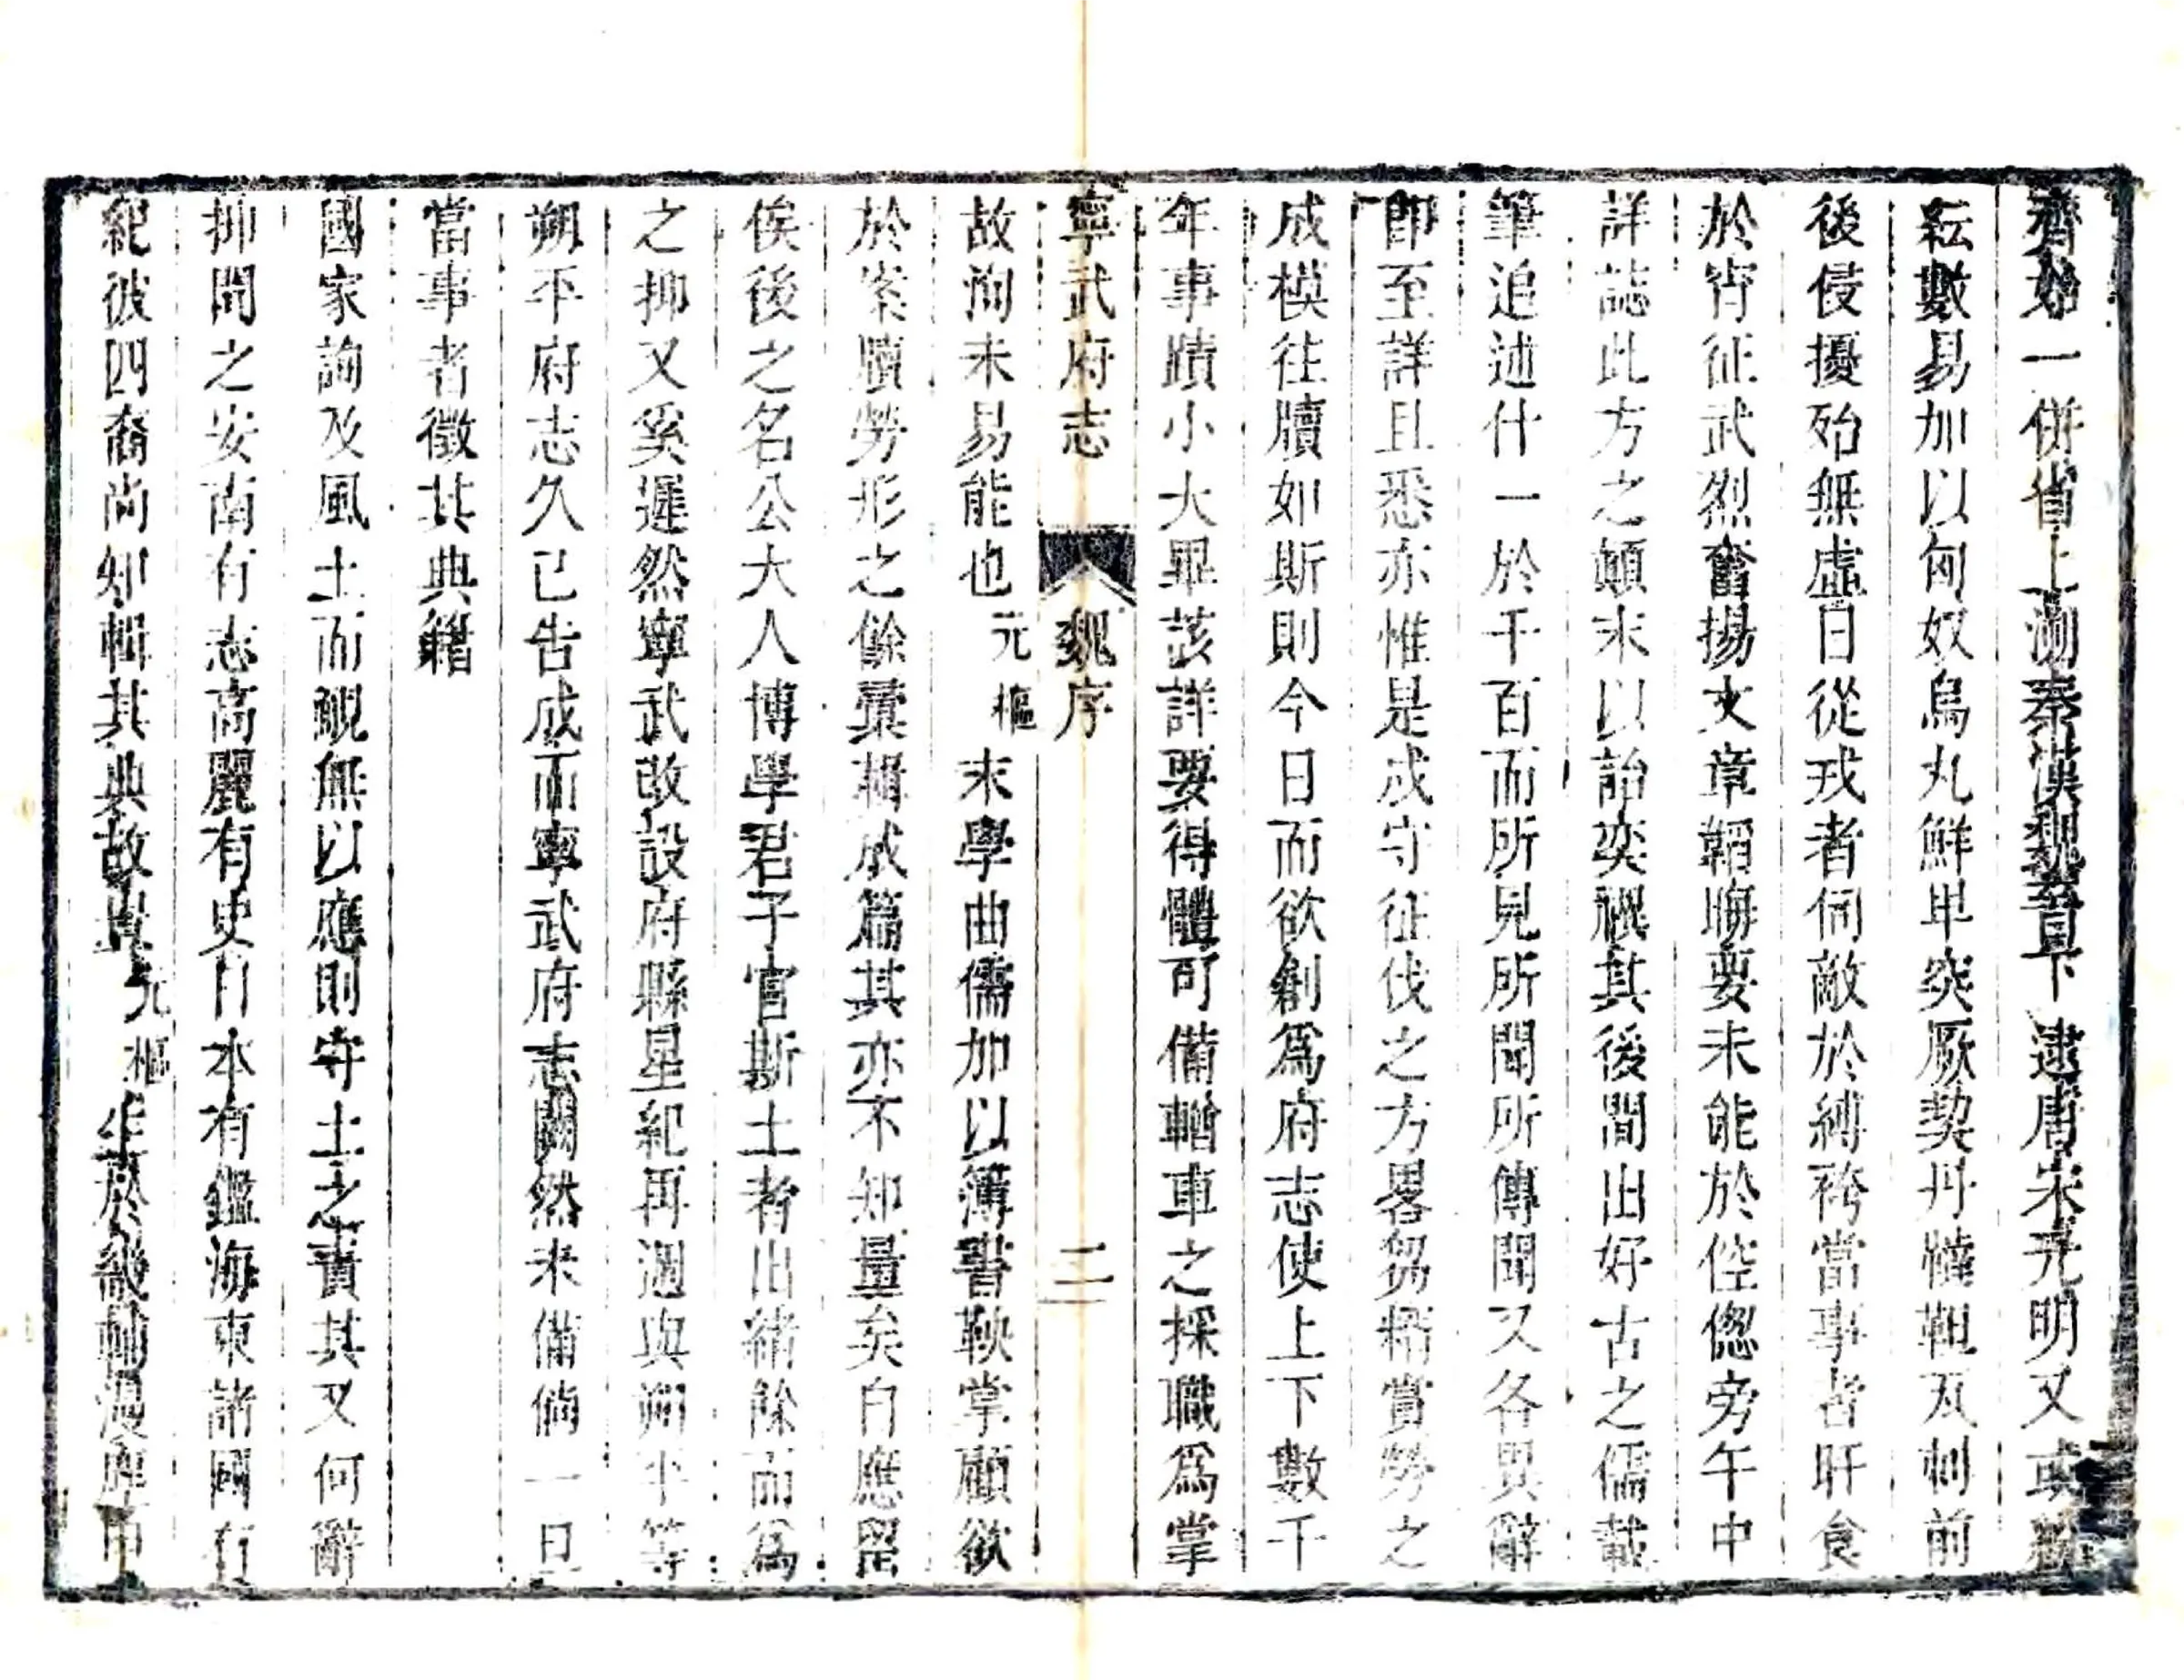 齊始一併省上溯秦漢魏晉下逮唐宋元明又或
耘數易加以匈奴烏丸鮮卑突厥契丹韃靼互刺前
後侵擾殆無虛日從戎者伺敵於縛袴當事者旰食
於宵征武烈奮揚文章韜晦要未能於倥傯旁午中
詳誌此方之顛末以詒奕禩其後間出好古之儒載
筆追述什一於千百而所見所聞所傳聞又各異辭
即至詳且悉亦惟是戍守征伐之方畧芻糈賞勞之
成模往牘如斯則今日而欲創爲府志使上下數千
年事蹟小大畢該詳要得體可備輶車之採職爲掌
寧武府志 魏序 二
故洵未易能也元樞末學曲儒加以簿書鞅掌顧欲
於案牘勞形之餘彙輯成篇其亦不知量矣自應留
俟後之名公大人博學君子官斯土者出緒餘而爲
之抑又奚遲然寧武改設府縣星紀再週與朔平等
朔平府志久已告成而寧武府志闕然未備倘一旦
當事者徵其典籍
國家詢及風土而覥無以應則守土之責其又何辭
抑聞之安南有志高麗有史日本有鑑海東諸國有
紀彼四裔尚知輯其典故異元樞生於畿輔